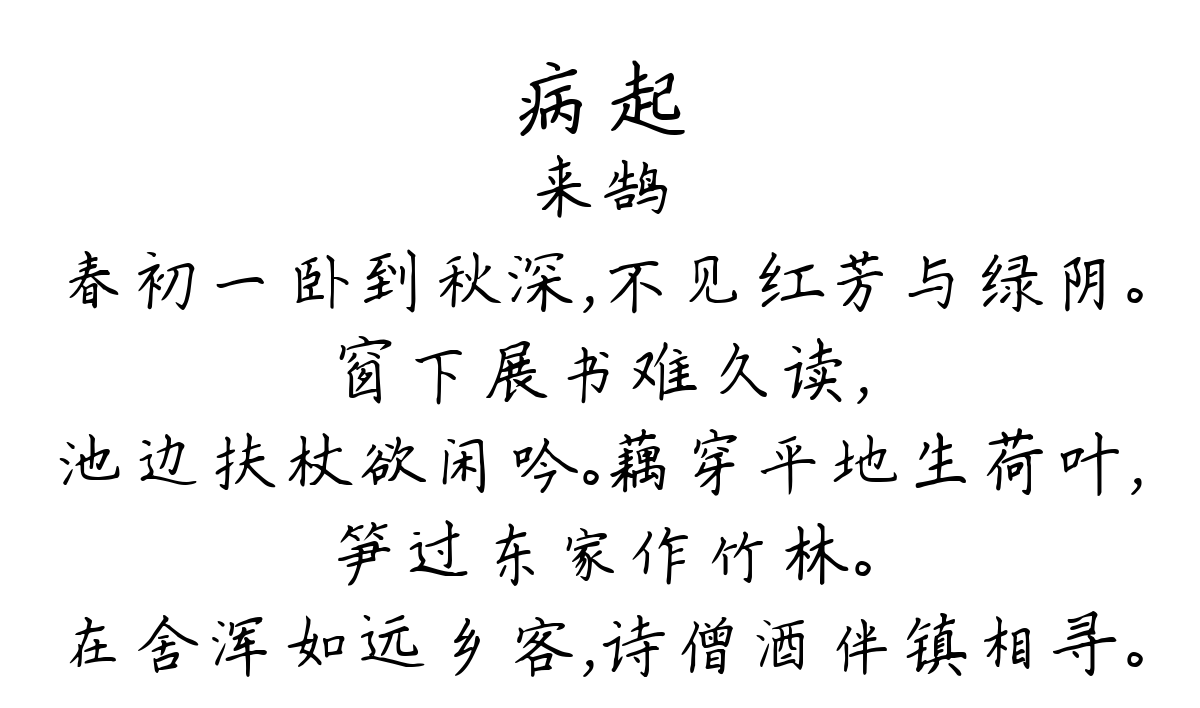 病起
来鹄
春初一卧到秋深,不见红芳与绿阴。
窗下展书难久读,
池边扶杖欲闲吟。藕穿平地生荷叶,
笋过东家作竹林。
在舍浑如远乡客,诗僧酒伴镇相寻。